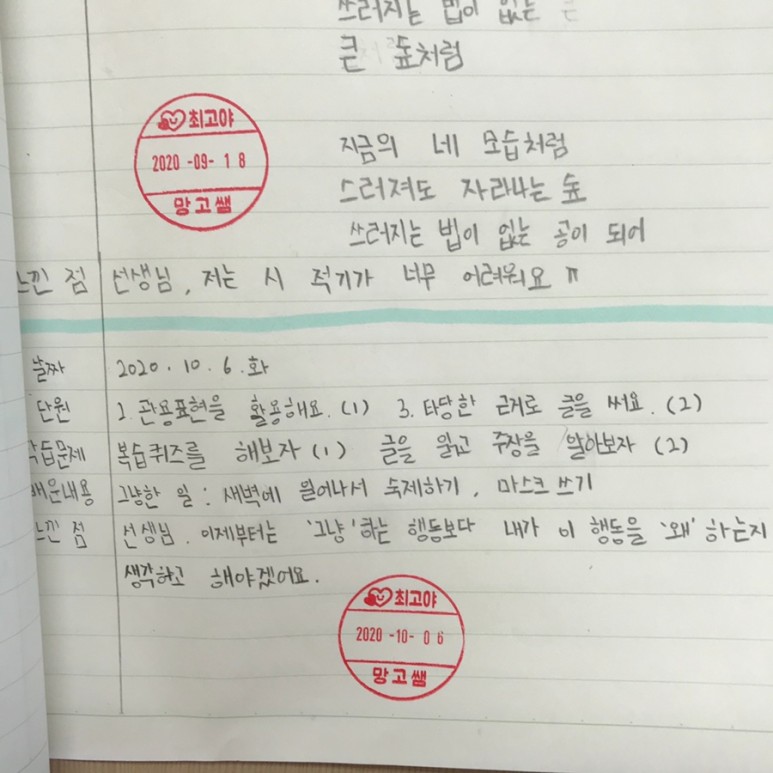 쓰러지는 법이 없는 큰
큰 숲처럼
최고야
2020 -09- 1 8
망고쌤
지금의 네 모습처럼
스러져도 자라나는 숲
쓰러지는 법이 없는 공이 되어
느낀 점 선생님, 저는 시 적기가 너무 어려워요 ㅠ
날짜 2020. 10. 6. 화
단원 2. 관용표현을 활용해요. (1) 3. 타당한 근거로 글을 써요. (2)
학습문제 복습퀴즈를 해보자 (1) 글을 읽고 주장을 알아보자 (2)
배운내용 그냥한 일 : 새벽에 일어나서 숙제하기, 마스크 쓰기
느낀 점 선생님. 이제부터는 '그냥'하는 행동보다 내가 이 행동을 '왜' 하는지
생각하고 해야겠어요.
최고야
2020 -10- 0 6
망고쌤